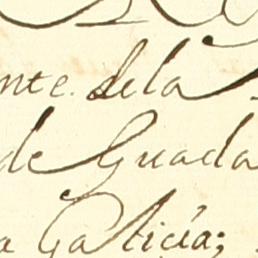 nte. dela
de Guada
a Galicia;